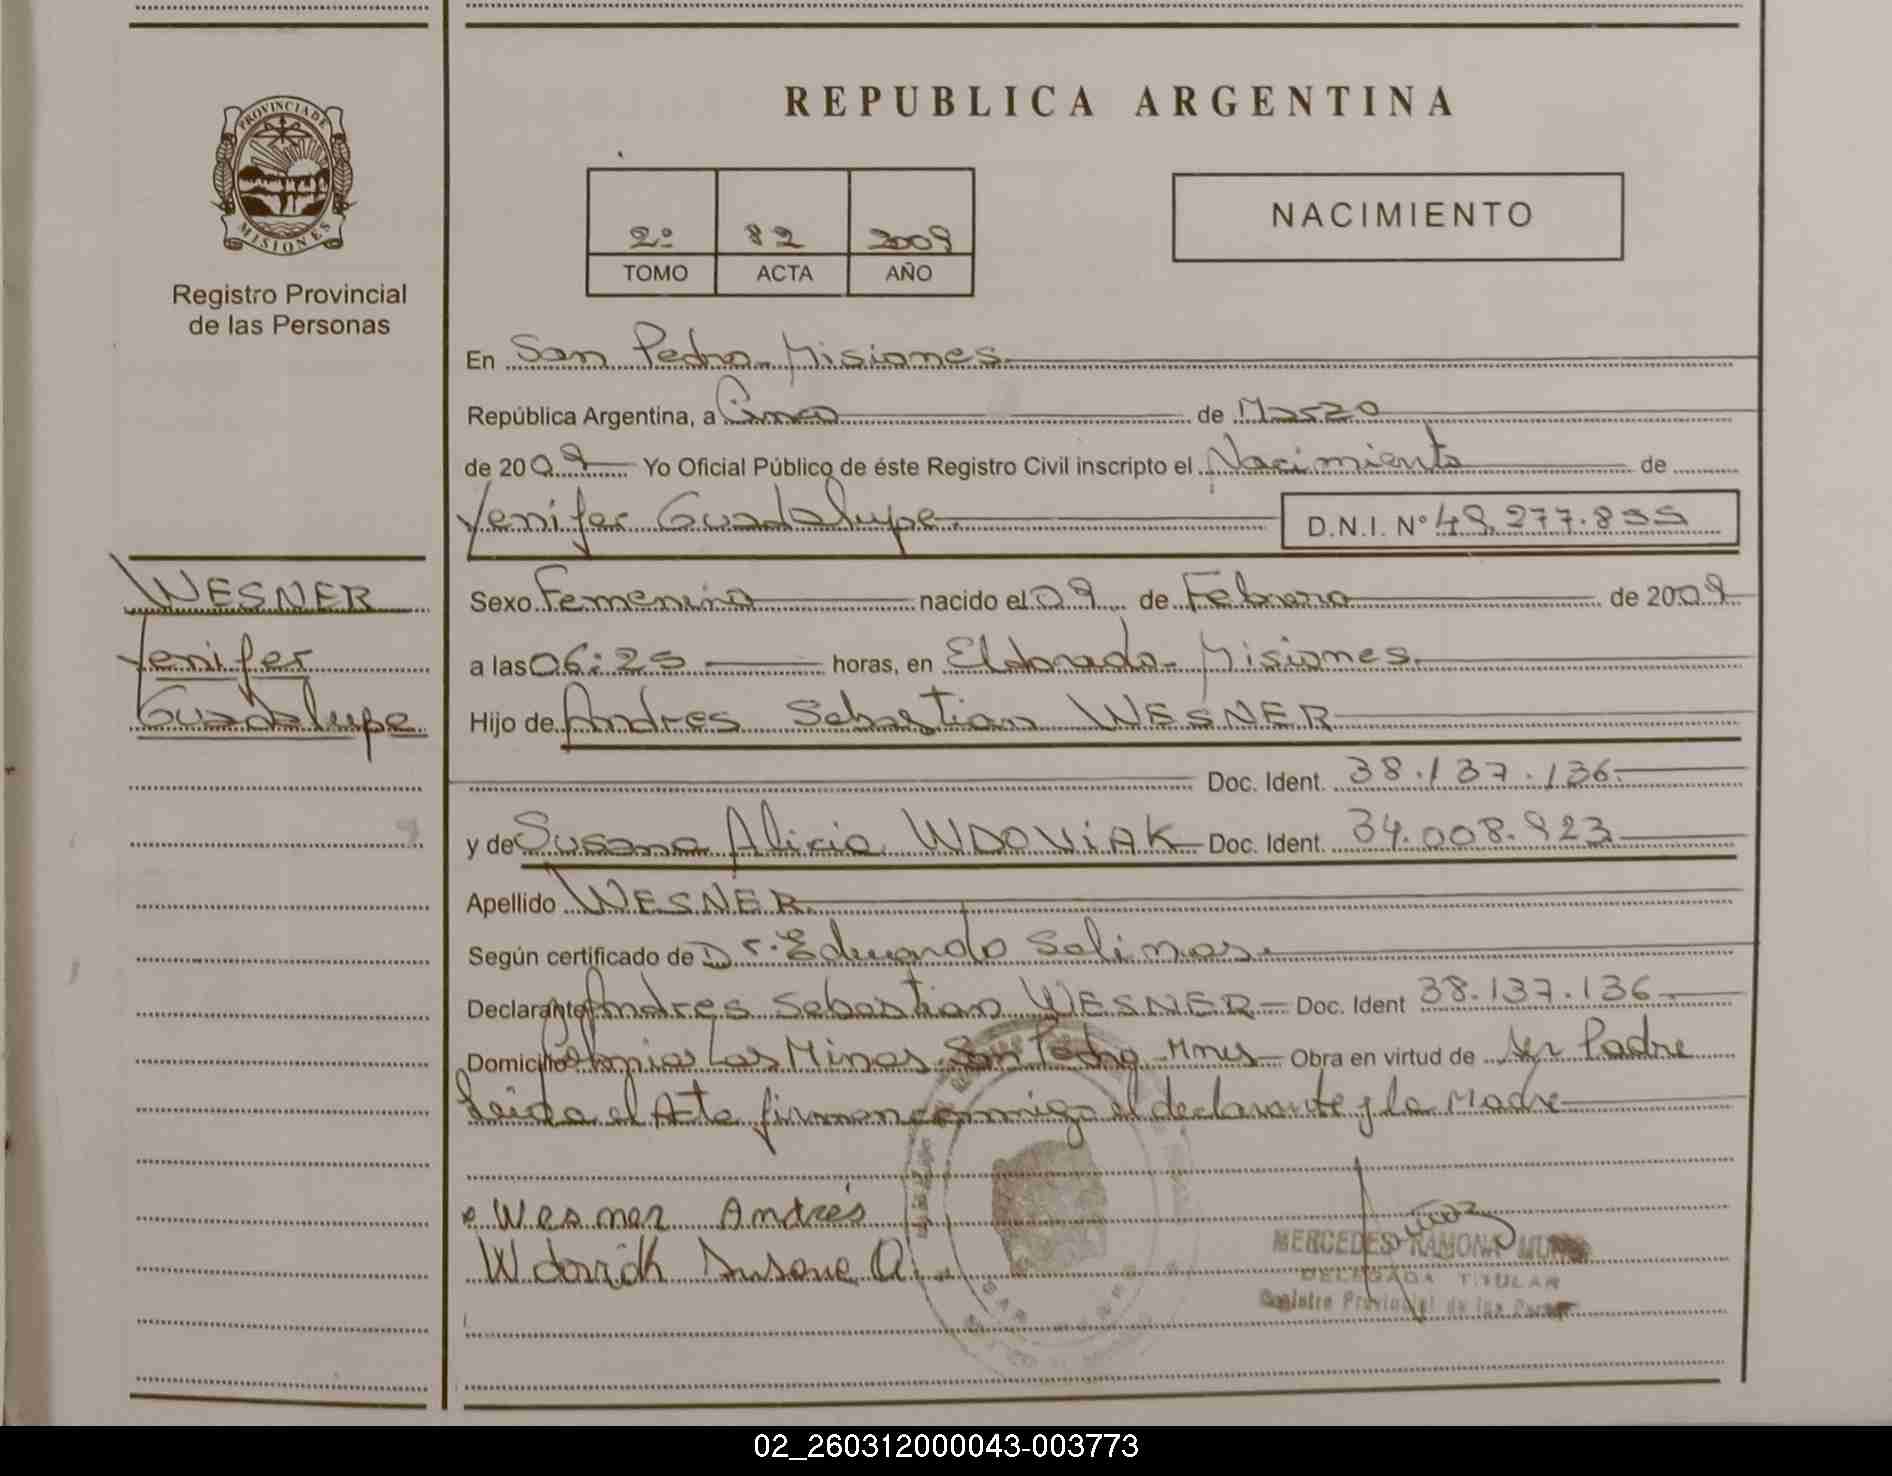 PROVINCIA DE
MISIONES
Registro Provincial
de las Personas
WESNER
Yenifer
Guadalupe
REPUBLICA ARGENTINA
2º 82 2009
TOMO ACTA AÑO
NACIMIENTO
En San Pedro - Misiones
República Argentina, a Cinco de Marzo
de 2009 Yo Oficial Público de éste Registro Civil inscripto el Nacimiento de
Yenifer Guadalupe. D.N.I. Nº 49.277.855
Sexo Femenino nacido el 09 de Febrero de 2009
a las 06:25 horas, en Eldorado - Misiones.
Hijo de Andres Sebastian WESNER
Doc. Ident. 38.137.136.
y de Susana Alicia WDOVIAK Doc. Ident. 34.008.923
Apellido WESNER.
Según certificado de Dr. Eduardo Salinas.
Declarante Andres Sebastian WESNER Doc. Ident 38.137.136.
Domicilio Colonia Las Minas San Pedro - Mnes Obra en virtud de ser Padre
Leida el Acta firman conmigo el declarante y la Madre
Wesner Andrés
Wdoviak Susana A.
MERCEDES RAMONA
DELEGADA TITULAR
Registro Provincial de las
02_260312000043-003773